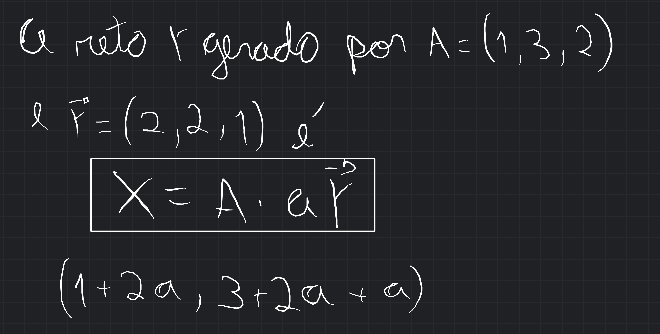 A reta r gerado por A=(1,3,2)
e r⃗=(2,2,1) é
X = A · a r⃗
(1+2a, 3+2a + a)